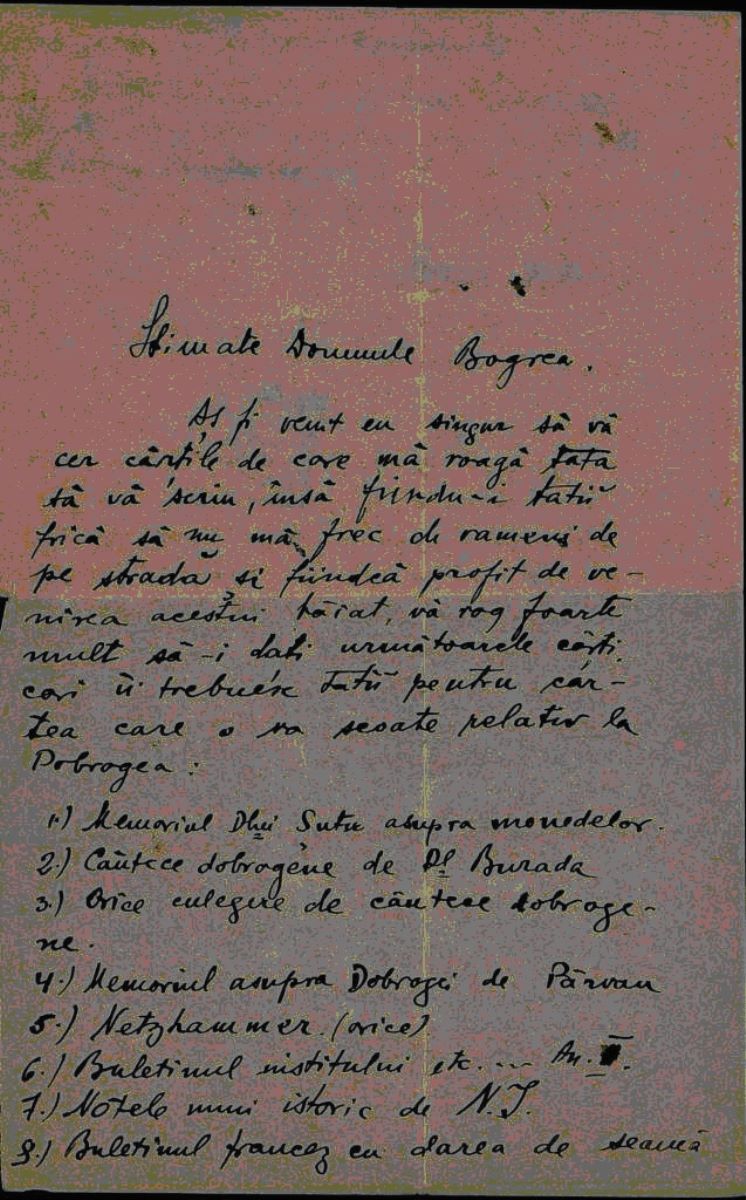 Stimate Domnule Bogrea.
Aș fi venit eu singur să vă
cer cărțile de care mă roagă tata
să vă scriu, însă fiindu-i tatii
frică să nu mă frec de oameni de
pe stradă și fiindcă profit de ve-
nirea acestui băiat, vă rog foarte
mult să-i dați următoarele cărți
cari îi trebuesc tatii pentru căr-
tea care o va scoate relativ la
Dobrogea:
1.) Memoriul Dlui Sutu asupra monedelor.
2.) Cântece dobrogene de Dl Burada
3.) Orice culegere de cântece dobroge-
ne.
4.) Memoriul asupra Dobrogei de Pârvan
5.) Netzhammer. (orice)
6.) Buletinul institului etc. ... An. I.
7.) Notele unui istoric de N.I.
8.) Buletinul francez cu darea de seamă